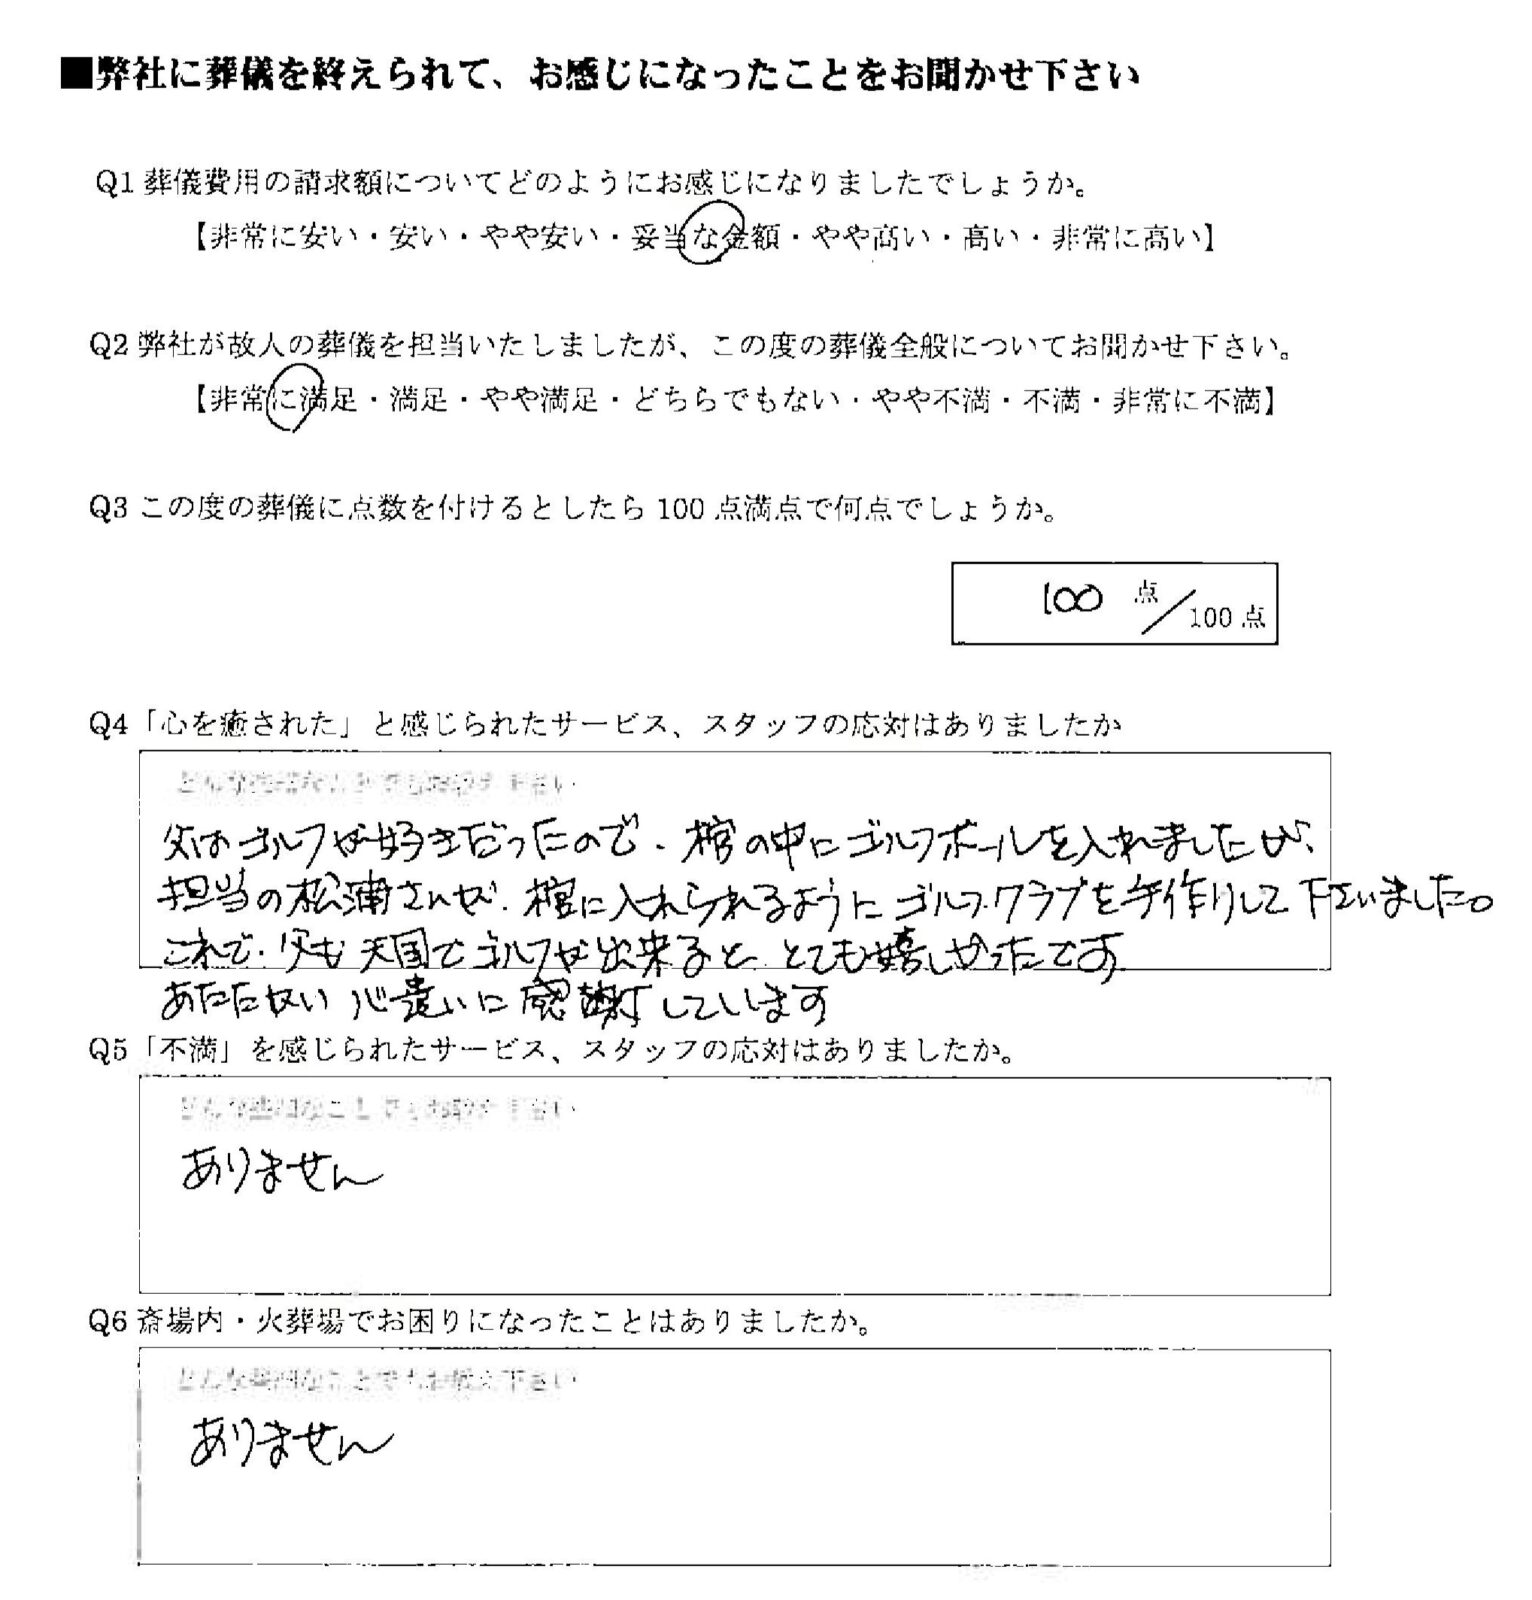 ■弊社に葬儀を終えられて、お感じになったことをお聞かせ下さい
Q1 葬儀費用の請求額についてどのようにお感じになりましたでしょうか。
【非常に安い・安い・やや安い・妥当な金額・やや高い・高い・非常に高い】
Q2 弊社が故人の葬儀を担当いたしましたが、この度の葬儀全般についてお聞かせ下さい。
【非常に満足・満足・やや満足・どちらでもない・やや不満・不満・非常に不満】
Q3 この度の葬儀に点数を付けるとしたら 100 点満点で何点でしょうか。
100 点／100 点
Q4「心を癒された」と感じられたサービス、スタッフの応対はありましたか
父はゴルフが好きだったので、棺の中にゴルフボールを入れましたが、
担当の松浦さんが、棺に入れられるようにゴルフクラブを手作りして下さいました。
これで、父も天国でゴルフが出来ると、とても嬉しかったです
あたたかい心遣いに感謝しています
Q5「不満」を感じられたサービス、スタッフの応対はありましたか。
ありません
Q6 斎場内・火葬場でお困りになったことはありましたか。
どんな些細なことでもお教え下さい
ありません